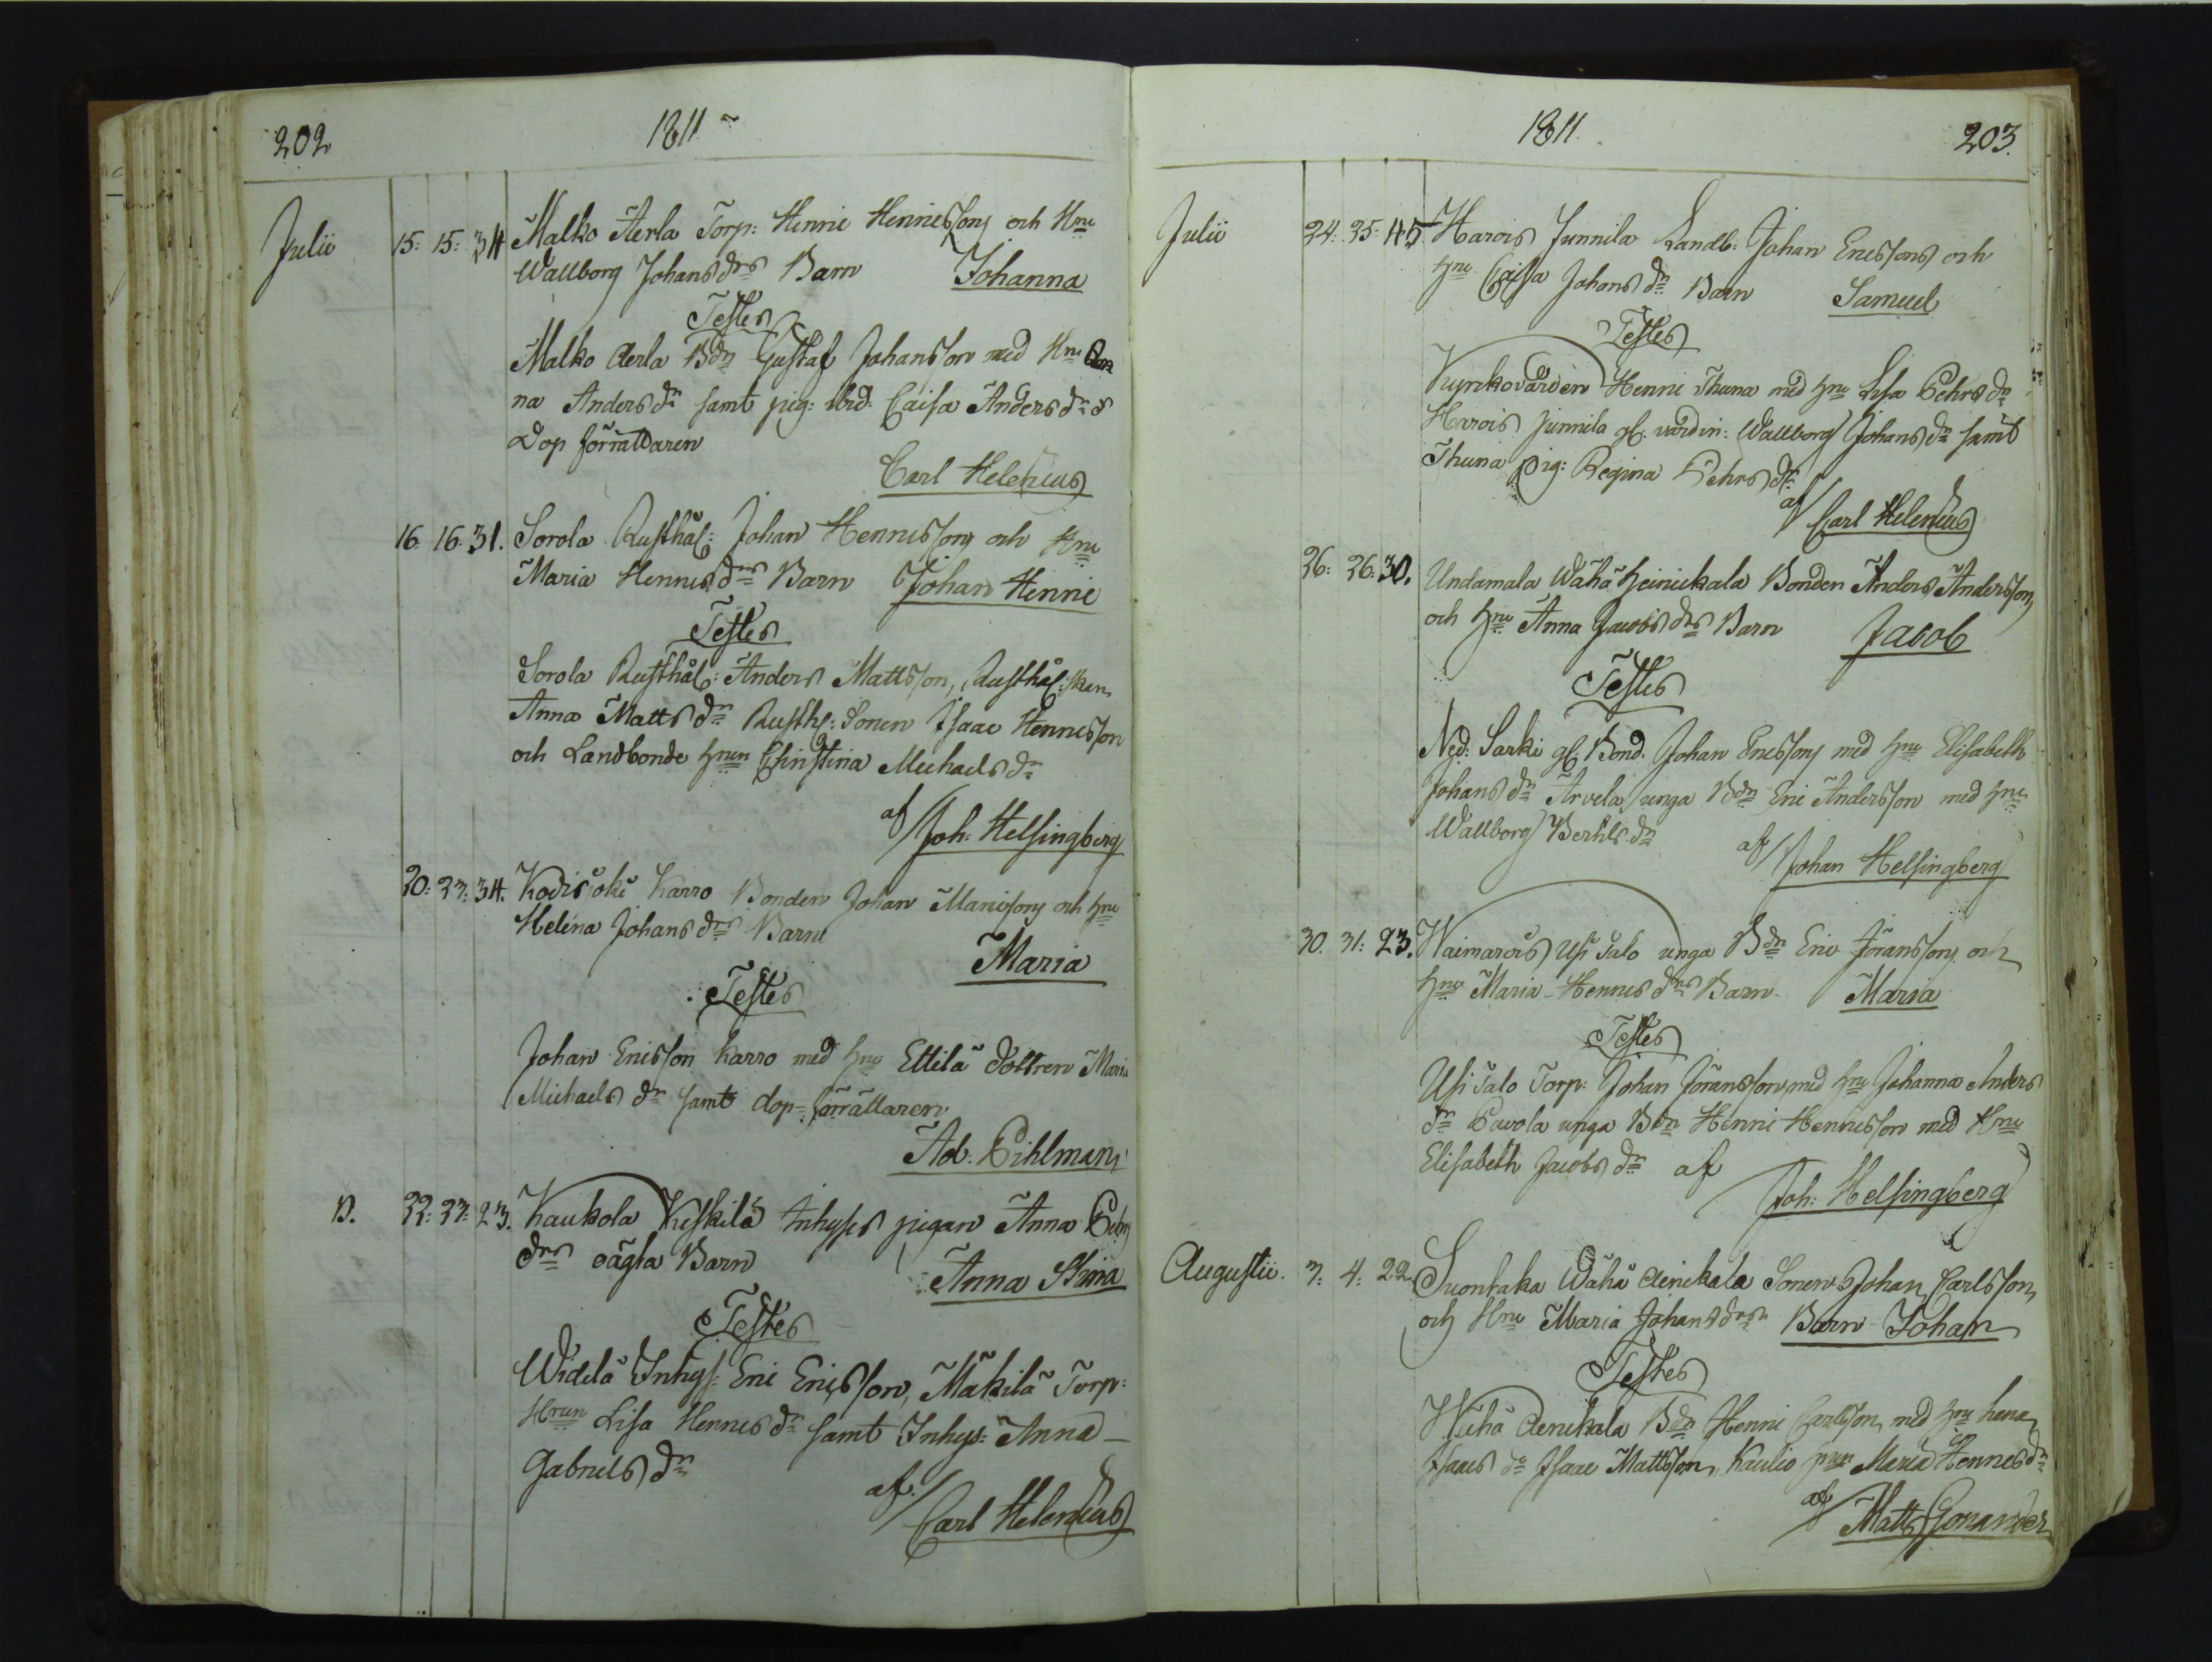 202
1811
Julii 15: 15: 34 Malko Äerla Torp: Henric Henricssons och Hru
Wallborg Johans drs Barn Johanna
Testes
Malko Aerla Bdn Gustaf Johansson med Hru An
na Anders dr samt pig: ibid: Caisa Anders dr &
Dop förrättaren
Carl Helenius
16. 16. 31. Sorola Rusthål: Johan Henricssons och Hru
Maria Henrics drs Barn Johan Henric
Testes
Sorola Rusthål: Anders Mattsson, Rusthål:skan
Anna Matts dr Rusth: Sonen Isaac Henricsson
och Landbonde Hrun Christina Michaels dr
af Joh: Helsingberg
20: 23: 34. Kodisoki Karro Bonden Johan Maricsons och Hru
Helena Johans drs Barn
Maria
Testes
Johan Ericsson Karro med Hru Ettilä dottren Maria
Michaels dr samt dop-förrättaren
Ad: Pihlman
D. 22: 23: 23. Kaukola Keskilä Inhyses pigan Anna Pehrs
drs oägta Barn
Anna Stina
Testes
Widilä Inhys: Eric Ericsson, Mäkilä Torp:
Hrun Lisa Henrics dr samt Inhys: Anna
Gabriels dr
af Carl Helenius
1811.
203.
Julii 24: 25: 45 Harois Junnila Landb: Johan Ericssons och
Hru Caisa Johans dr Barn Samuel
Testes
Kyrkovärden Henric Thuna med Hru Lisa Pehrs dr
Harois Junnila gl. värdin: Wallborg Johans dr samt
Thuna pig: Regina Pehrs dr
af Carl Helenius
26: 26: 30. Undamala Wähä Heinickala Bonden Anders Andersson
och Hru Anna Jacobs drs Barn Jacob
Testes
Ned: Sarki gl. Bond: Johan Ericssons med Hru Elisabeth
Johans dr Arvela unga Bdn Eric Andersson med Hru
Wallborg Bertils dr
af Johan Helsingberg
30. 31: 23. Waimarois Usi Talo unga Bdn Eric Jöranssons och
Hru Maria Henrics drs Barn Maria
Testes
Usi Talo Torp: Johan Jöransson med Hru Johanna Anders
dr Pavola unga Bdn Henric Henricsson med Hru
Elisabeth Jacobs dr af
Joh: Helsingberg
Augustii. 3: 4: 22. Suontaka Wähä Aenikala Sonen Johan Carlsson
och Hru Maria Johans drs Barn Johan
Testes
Wähä Aenikala Bdn Henric Carlsson med Hru Lena
Isaacs dr Isaac Mattsson, Kaulio Hrun Maria Henrics dr
af Matts Gonander